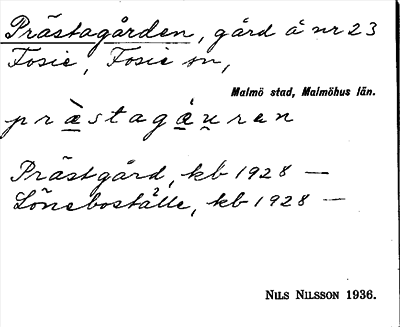 Prästagården, gård å nr 23
Fosie, Fosie sn,
Malmö stad, Malmöhus län.
præ̀stagá̱u̱rən
Prästgård, kb 1928 —
Löneboställe, kb 1928 —
NILS NILSSON 1936.